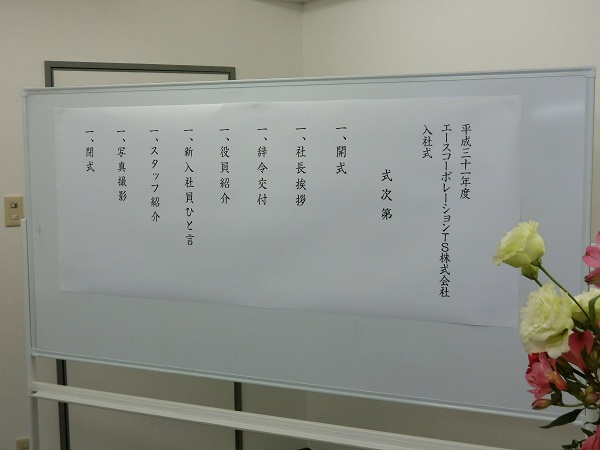 平成三十一年度
エースコーポレーションTS株式会社
入社式
式次第
一、開式
一、社長挨拶
一、辞令交付
一、役員紹介
一、新入社員ひと言
一、スタッフ紹介
一、写真撮影
一、閉式